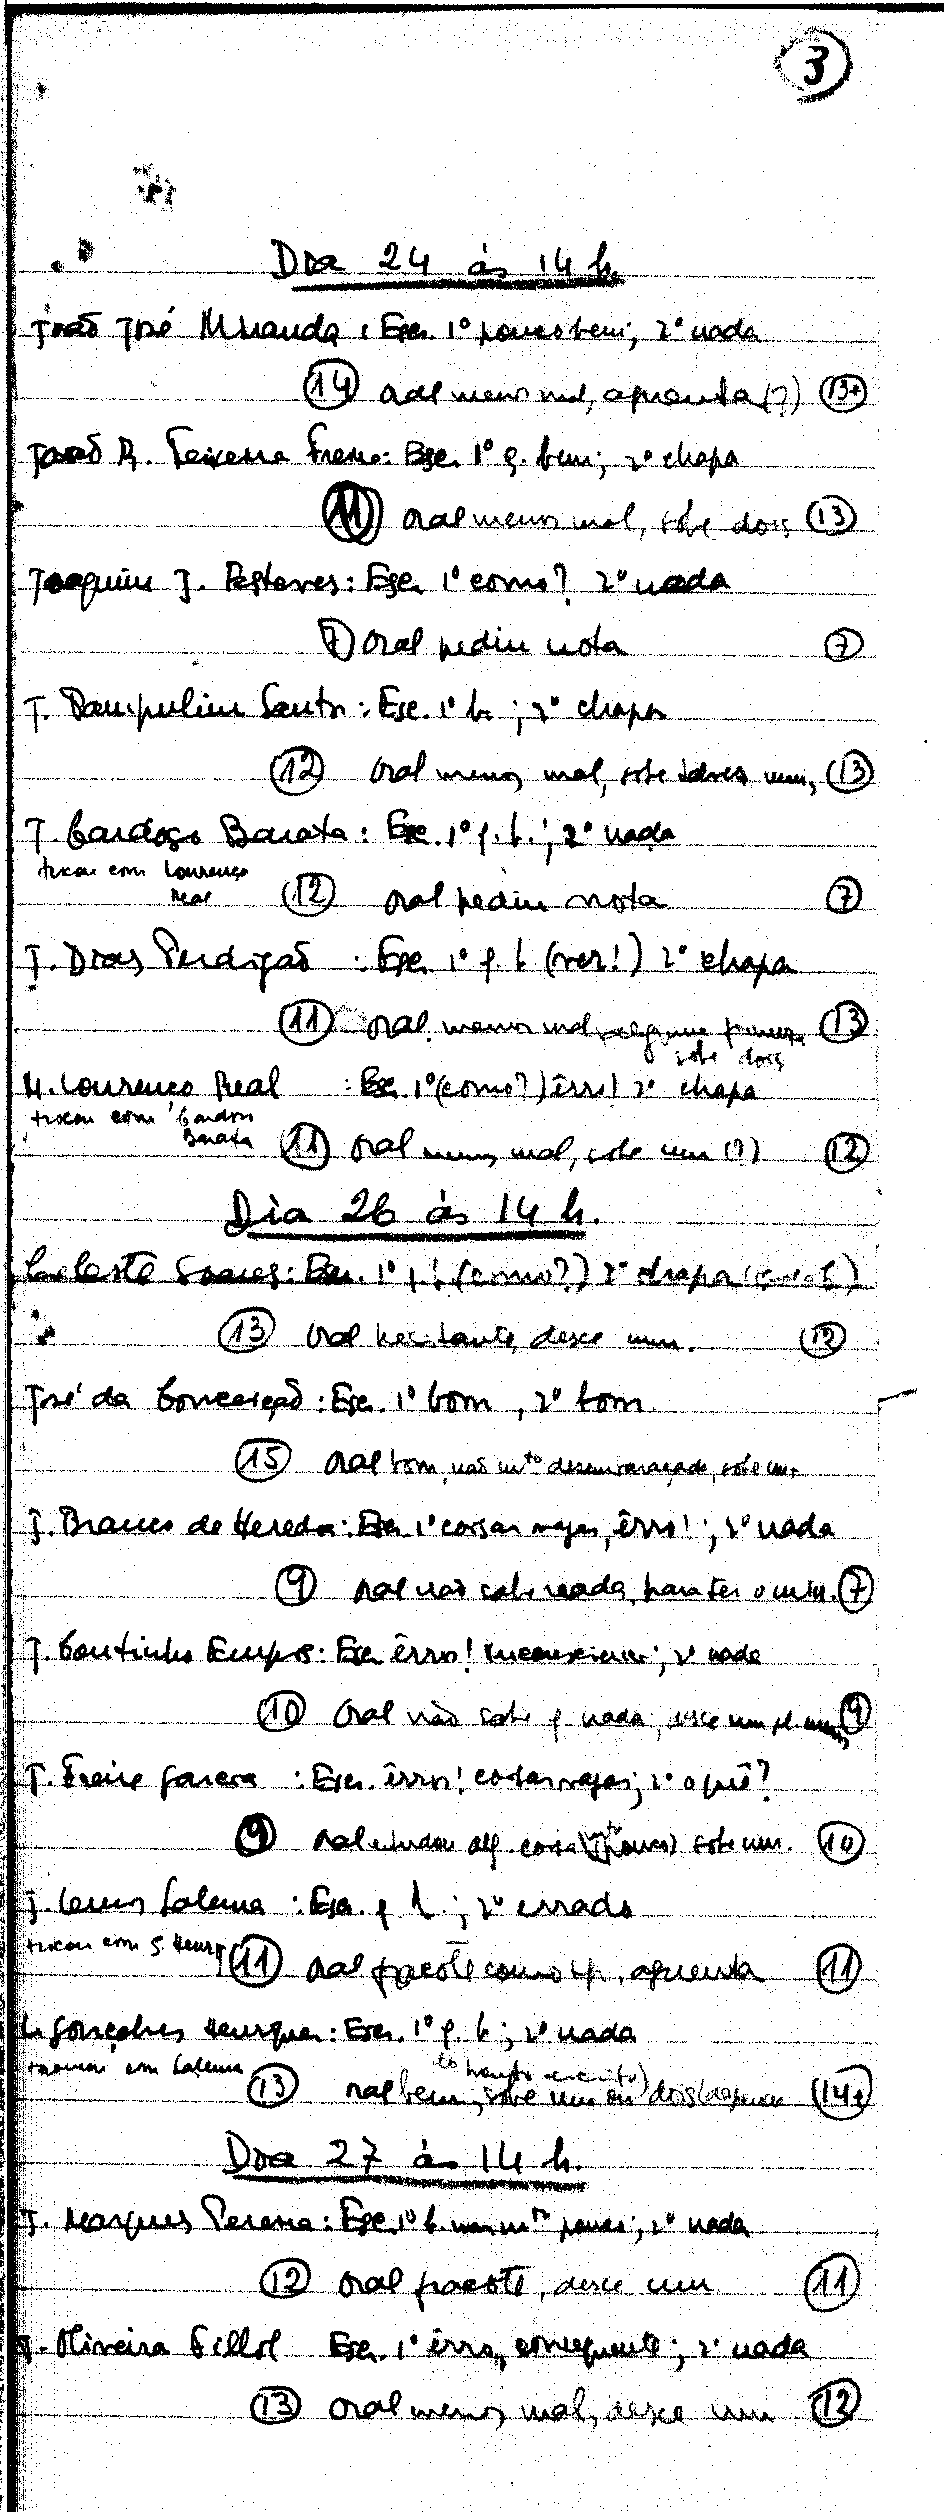 3
Dia 24 às 14 h.
João José Miranda: Esc. 1º pouco bem; 2º nada
14 oral menos mal, aguenta (?) 13+
João R. Teixeira Freire: Esc. 1º q. bem; 2º chapa
11 oral menos mal, sobe dois 13
Joaquim J. Pestanes: Esc. 1º como? 2º nada
7 oral pediu nota 7
J. Pampulim Santos: Esc. 1º b.; 2º chapa
12 oral menos mal, sobe talvez um, 13
J. Cardoso Barata: Esc. 1º q. b.; 2º nada
trocou com Lourenço
Real
12 oral pediu nota 7
J. Dias Perdigão: Esc. 1º q. b (ver!) 2º chapa
11 oral menos mal, sobe dois 13
M. Lourenço Real: Esc. 1º (como?) êrro! 2º chapa
trocou com Cardoso
Barata
11 oral menos mal, sobe um (?) 12
Dia 26 às 14 h.
Soares: Esc. 1º (como?) 2º chapa
13 oral hesitante, desce um. 12
José da Conceição: Esc. 1º bom, 2º bom
15 oral bom, não mto desembaraçado, sobe um
J. Branco de Heredia: Esc. 1º coisas vagas, êrro!; 2º nada
9 oral não sabe nada, 7
J. Coutinho: Esc. êrro! 2º nada
10 oral não sabe q. nada, desce um 9
J. Freire: Esc. êrro! coisas vagas; 2º o quê?
9 oral estudou alg. coisa (mto pouco) sobe um. 10
J. Lemos Salema: Esc. q b.; 2º errado
trocou com G. Henriq
11 oral pacote como, aguenta 11
L. Gonçalves Henriques: Esc. 1º q. b; 2º nada
trocou com Salema
13 oral bem, sobe um ou dois 14+
Dia 27 às 14 h.
J. Marques Pereira: Esc. 1º b. mas mto pouco; 2º nada
12 oral pacote, desce um 11
J. Oliveira Fillol Esc. 1º êrro, consequente; 2º nada
13 oral menos mal, desce um 12